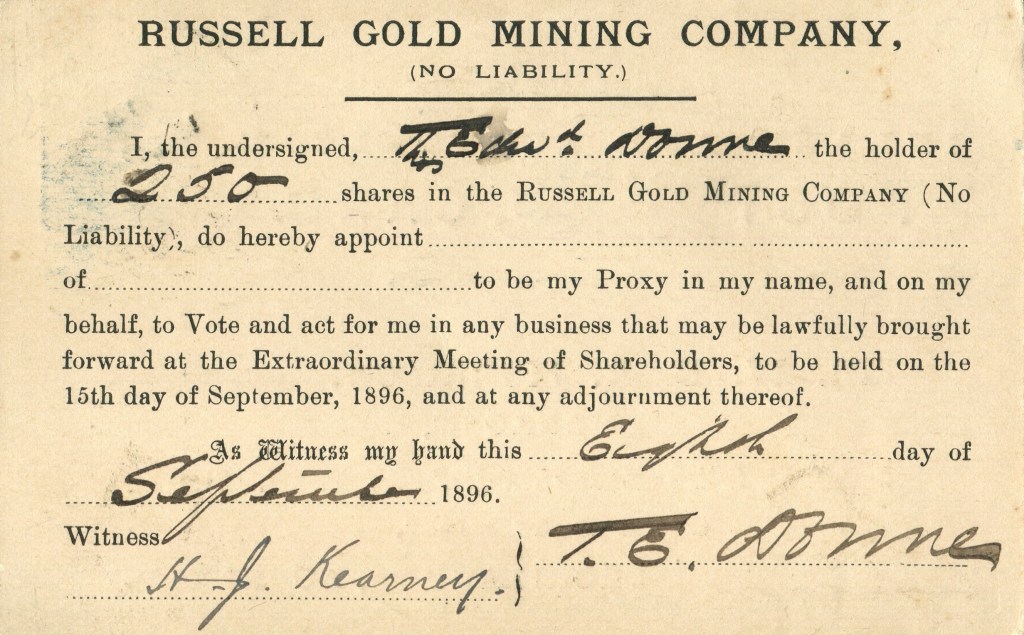 RUSSELL GOLD MINING COMPANY,
(NO LIABILITY.)
I, the undersigned, Thos Edwd Donne the holder of
250 shares in the RUSSELL GOLD MINING COMPANY (No
Liability), do hereby appoint
of to be my Proxy in my name, and on my
behalf, to Vote and act for me in any business that may be lawfully brought
forward at the Extraordinary Meeting of Shareholders, to be held on the
15th day of September, 1896, and at any adjournment thereof.
As Witness my hand this Eighth day of
September 1896.
Witness
H. J. Kearney. T. E. Donne